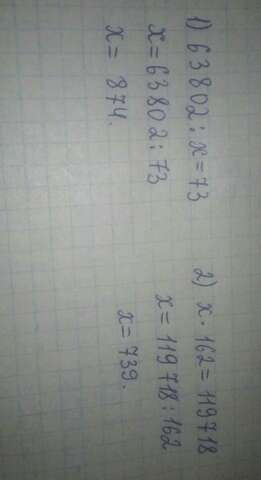 1) 63802 : x = 73
x = 63802 : 73
x = 874.
2) x · 162 = 119718
x = 119718 : 162
x = 739.